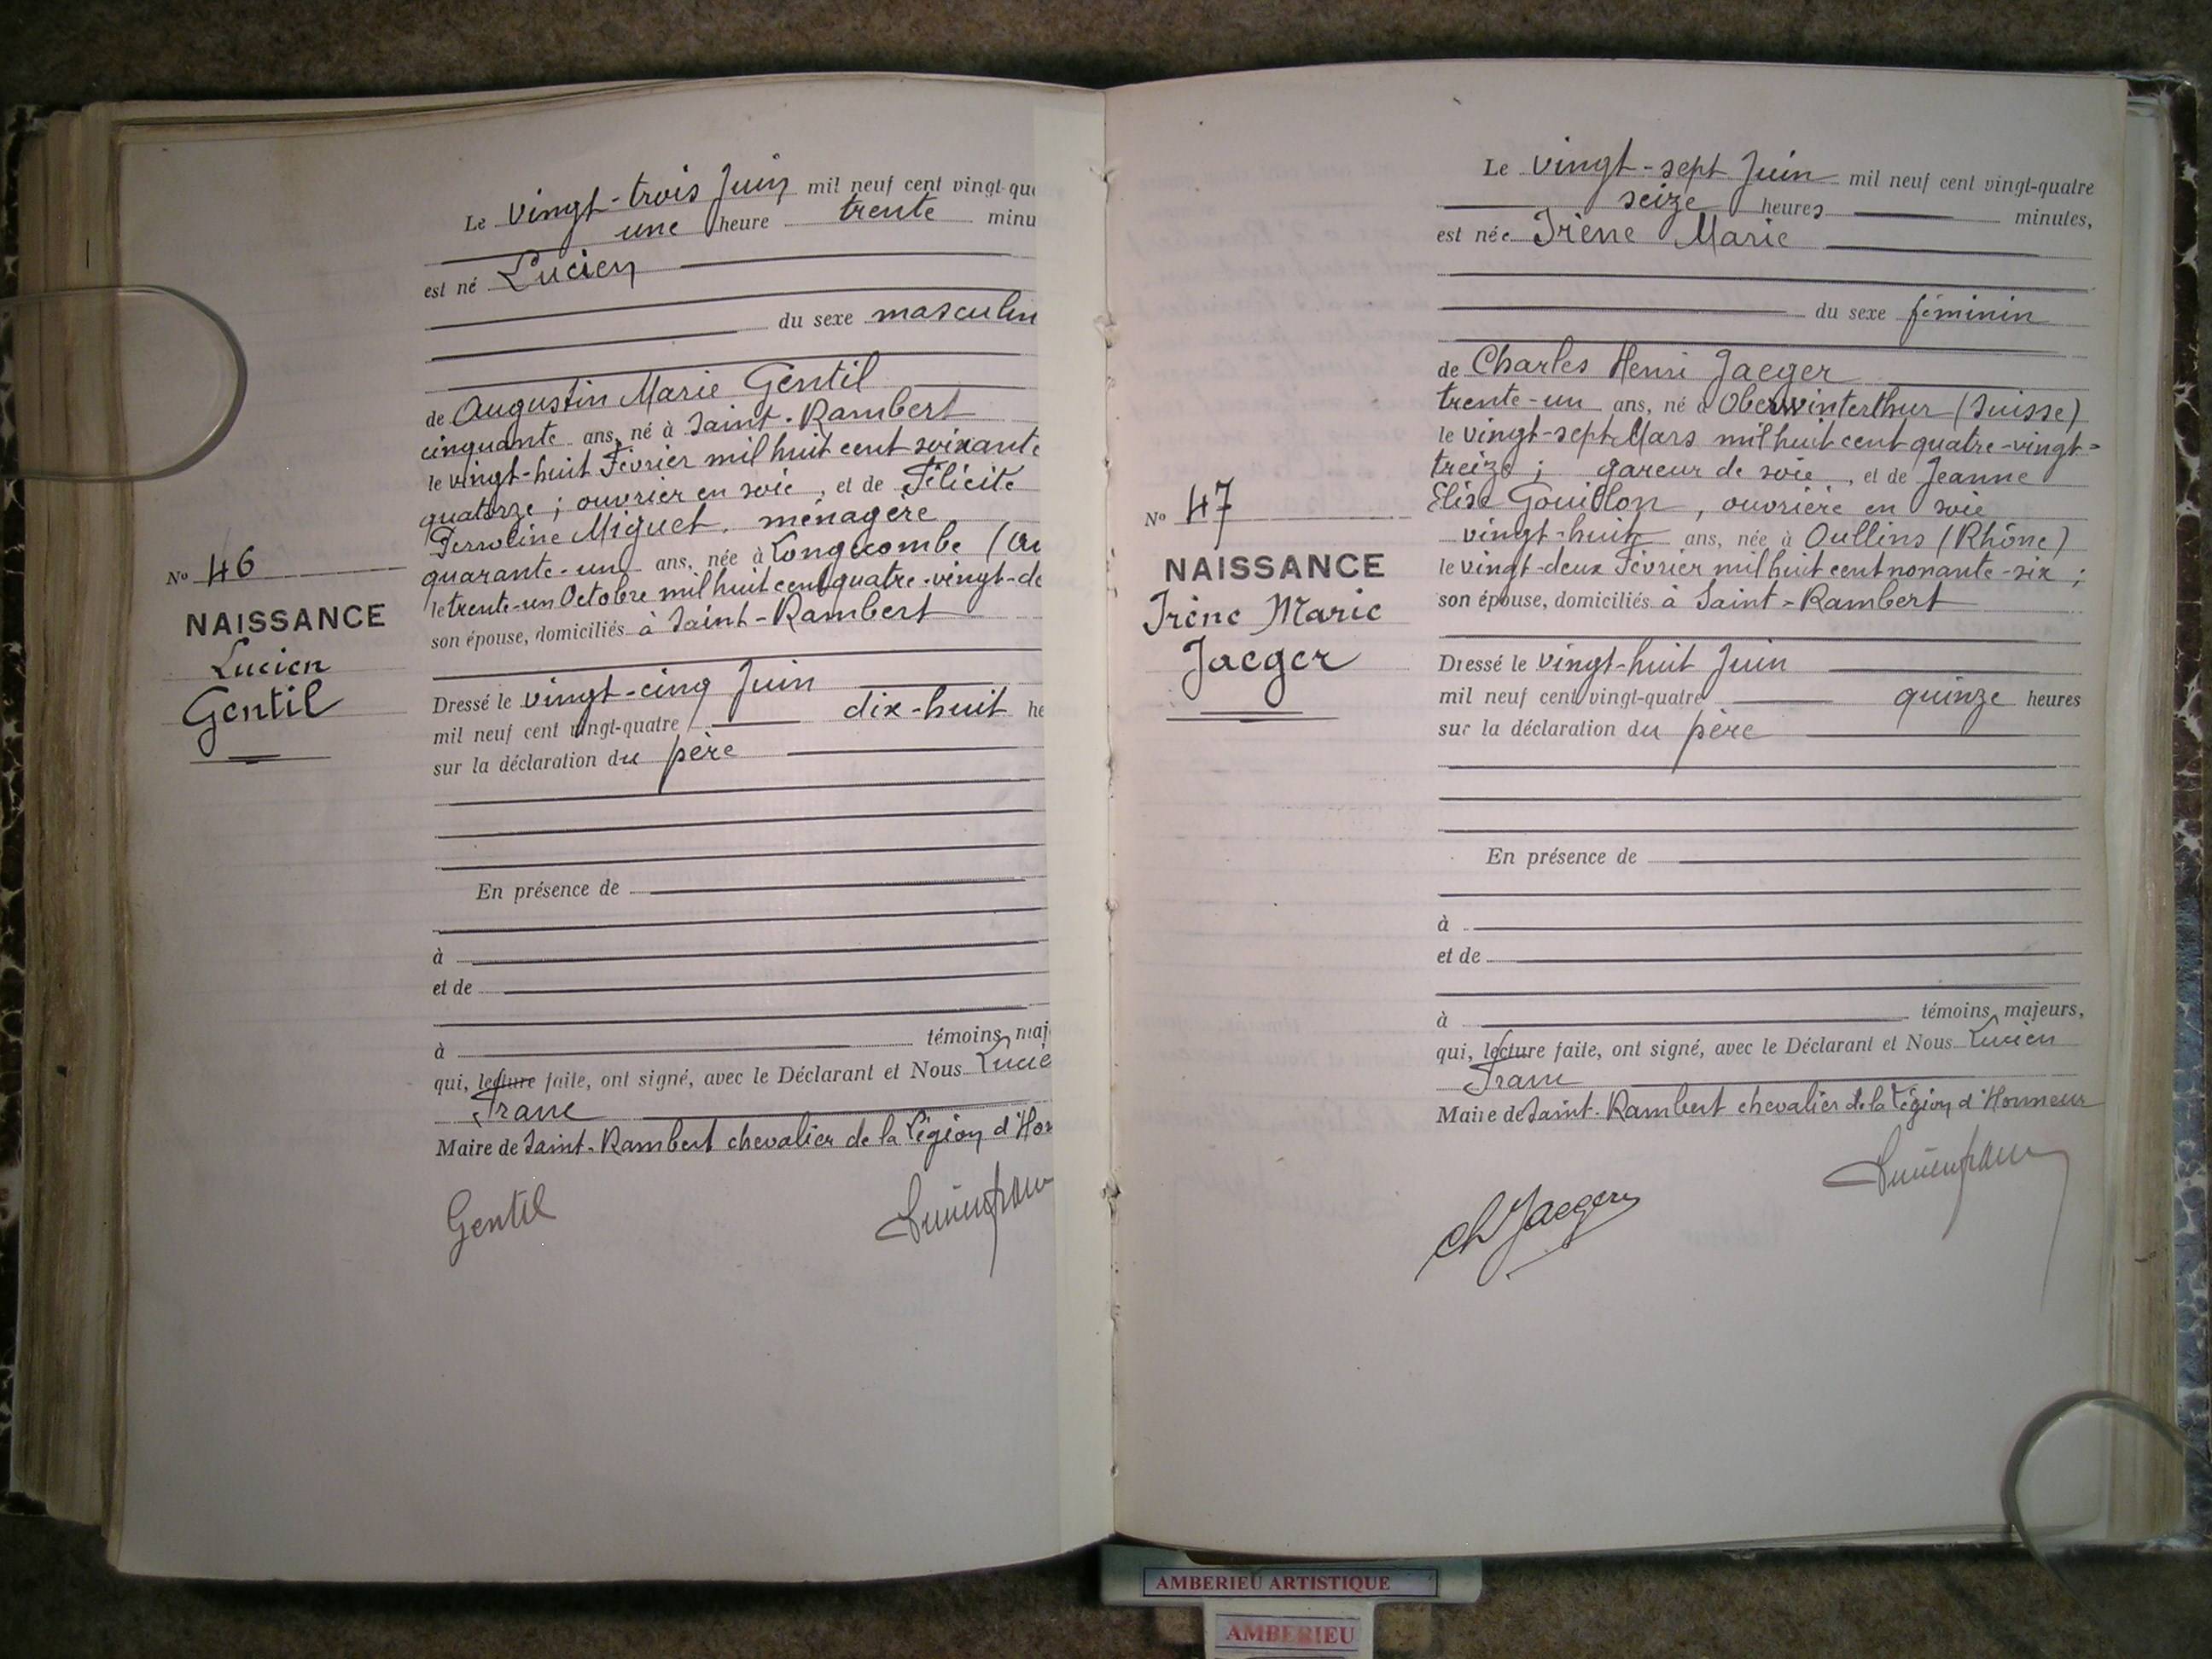 Le vingt-trois Juin mil neuf cent vingt-qua
une heure trente minu
est né Lucien
du sexe masculin
de Augustin Marie Gentil
cinquante ans, né à Saint-Rambert
le vingt-huit Février mil huit cent soixante
quatorze ; ouvrier en soie, et de Félicité
Perroline Miguet, ménagère
quarante-un ans, née à Longecombe (
le trente-un Octobre mil huit cent quatre-vingt-de
son épouse, domiciliés à Saint-Rambert
No 46
NAISSANCE
Lucien
Gentil
Dressé le vingt-cinq Juin
mil neuf cent vingt-quatre dix-huit he
sur la déclaration du père
En présence de
à
et de
à témoins maj
qui, lecture faite, ont signé, avec le Déclarant et Nous Lucie
Franc
Maire de Saint-Rambert chevalier de la Légion d'Hon
Gentil
Lucien franc
Le vingt-sept Juin mil neuf cent vingt-quatre
seize heures minutes,
est née Irène Marie
du sexe féminin
de Charles Henri Jaeger
trente-un ans, né à Oberwinterthur (Suisse)
le vingt-sept Mars mil huit cent quatre-vingt-
treize ; gareur de soie, et de Jeanne
Elise Gouillon, ouvrière en soie
vingt-huit ans, née à Oullins (Rhône)
le vingt-deux Février mil huit cent nonante-six ;
son épouse, domiciliés à Saint-Rambert
No 47
NAISSANCE
Irène Marie
Jaeger
Dressé le vingt-huit Juin
mil neuf cent vingt-quatre quinze heures
sur la déclaration du père
En présence de
à
et de
à témoins majeurs,
qui, lecture faite, ont signé, avec le Déclarant et Nous Lucien
Franc
Maire de Saint-Rambert chevalier de la Légion d'Honneur
Lucien franc
Ch Jaeger
AMBERIEU ARTISTIQUE
AMBERIEU